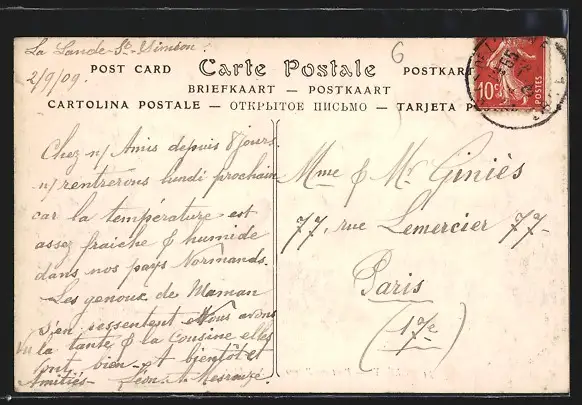 La Lande-St-Siméon.
2/9/09.
6
POST CARD Carte Postale POSTKART
BRIEFKAART — POSTKAART
CARTOLINA POSTALE — ОТКРЫТОЕ ПИСЬМО — TARJETA P
10c POSTES
Chez n/ Amis depuis 8 jours.
n/ rentrerons lundi prochain
car la température est
assez fraiche & humide
dans nos pays Normands.
Les genoux de Maman
s'en ressentent Nous avons
vu la tante & la Cousine elles
vont bien - et bientôt et
Amitiés - Léon
Mme & Mr Giniès
77, rue Lemercier 77
Paris
(17e)